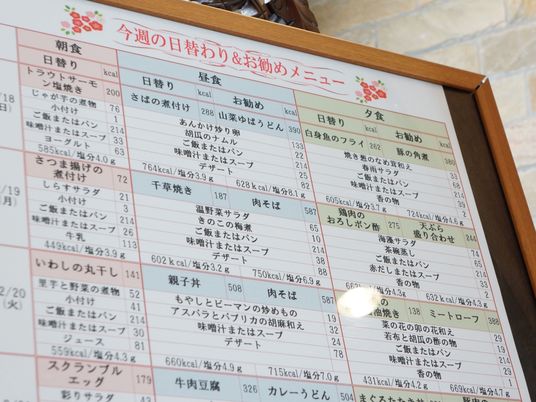 今週の日替わり&お勧めメニュー
朝食
日替り kcal
トラウトサーモン塩焼き 200
じゃが芋の煮物 76
小付け 1
ご飯またはパン
味噌汁またはスープ
ヨーグルト 33
585kcal/塩分4.0g
さつま揚げの煮付け 72
しらすサラダ
小付け 2
ご飯またはパン 214
味噌汁またはスープ 26
牛乳 113
449kcal/塩分3.9g
2/20
(火)
いわしの丸干し 141
里芋と野菜の煮物 52
小付け 41
ご飯またはパン 214
味噌汁またはスープ 30
ジュース 81
559kcal/塩分4.3g
スクランブルエッグ 179
彩りサラダ
昼食
日替り kcal お勧め kcal
さばの煮付け 288 山菜ゆばうどん 390
あんかけ炒り卵
胡瓜のナムル
ご飯またはパン
味噌汁またはスープ
デザート
764kcal/塩分3.9g 628kcal/塩分8.1g
千草焼き 187 肉そば 587
温野菜サラダ
きのこの梅煮
ご飯またはパン
味噌汁またはスープ
デザート
602kcal/塩分3.2g 750kcal/塩分6.9g
親子丼 508 肉そば 587
もやしとピーマンの炒めもの
アスパラとパプリカの胡麻和え
味噌汁またはスープ
デザート
660kcal/塩分4.9g 715kcal/塩分7.0g
牛肉豆腐 326 カレーうどん 504
夕食
日替り kcal お勧め kcal
白身魚のフライ 262 豚の角煮 380
焼き葱のなめ茸和え
春雨サラダ
ご飯またはパン
味噌汁またはスープ
香の物
605kcal/塩分3.7g 724kcal/塩分4.6g
鶏肉のおろしポン酢 275 天ぷら盛り合わせ 244
海藻サラダ
茶碗蒸し
ご飯またはパン
赤だしまたはスープ
香の物
632kcal/塩分4.3g
138 ミートローフ 388
菜の花の卵の花和え
若布と胡瓜の酢の物
ご飯またはパン
味噌汁またはスープ
香の物
431kcal/塩分4.2g 669kcal/塩分4.7g